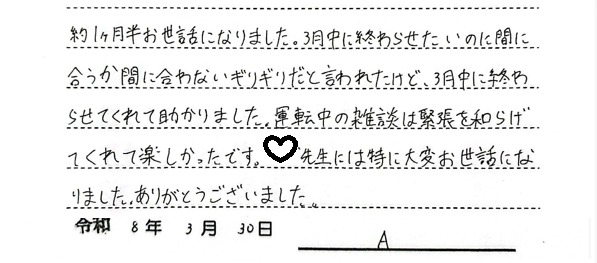 約1ヶ月半お世話になりました。3月中に終わらせたいのに間に
合うか間に合わないギリギリだと言われたけど、3月中に終わ
らせてくれて助かりました。運転中の雑談は緊張を和らげ
てくれて楽しかったです。♡先生には特に大変お世話にな
りました。ありがとうございました。
令和 8年 3月 30日 A